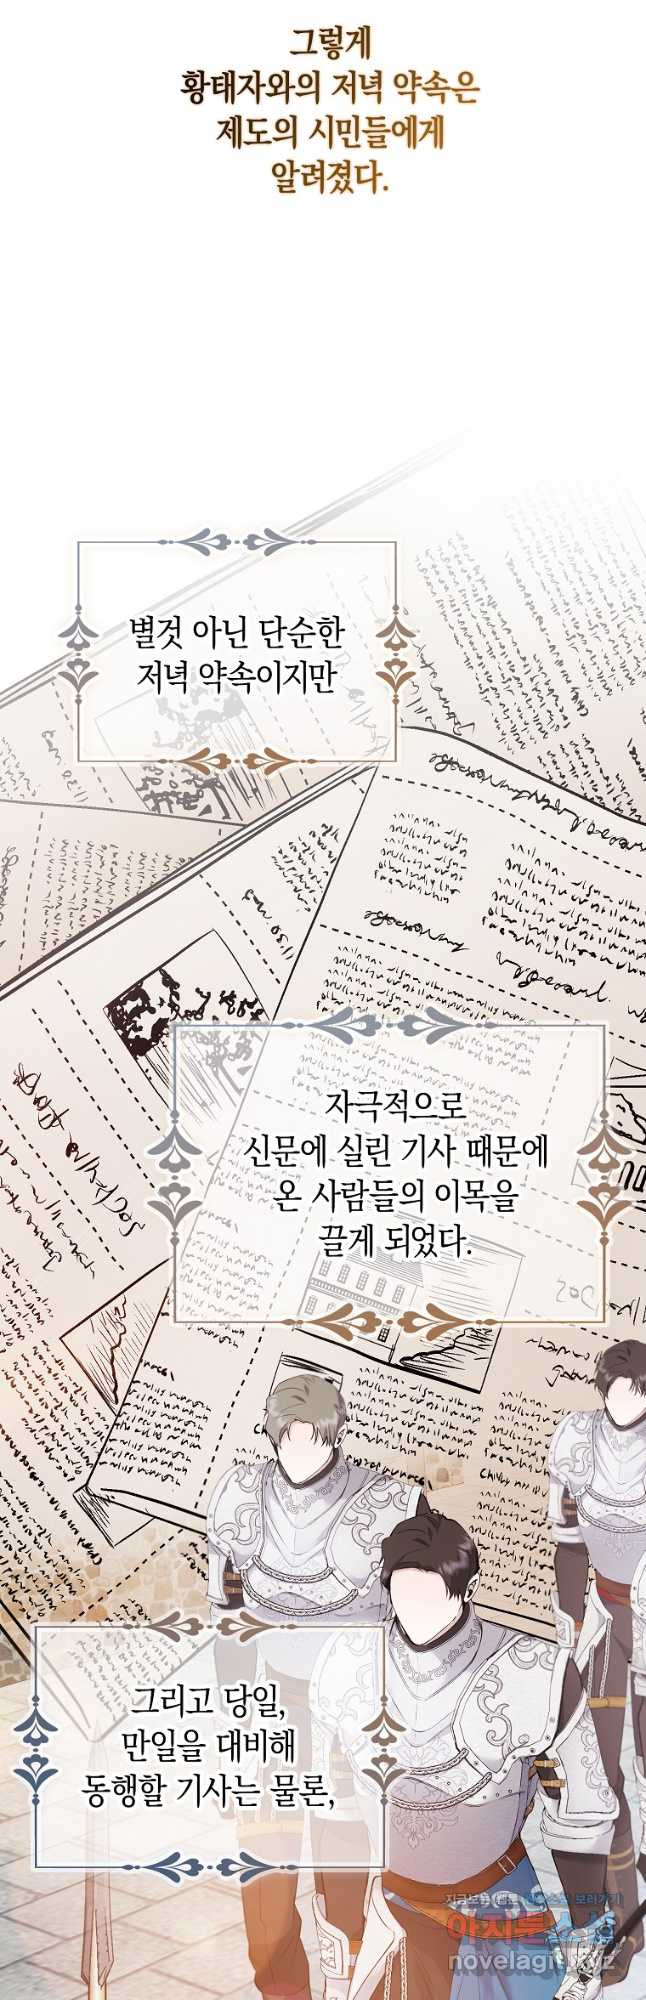 그렇게
황태자와의 저녁 약속은
제도의 시민들에게
알려졌다.
별것 아닌 단순한
저녁 약속이지만
자극적으로
신문에 실린 기사 때문에
온 사람들의 이목을
끌게 되었다.
그리고 당일,
만일을 대비해
동행할 기사는 물론,
지금보는 웹툰 아지툰소설 보러가기
아지툰소설
novelagit.xyz